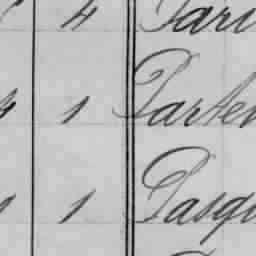 4 Pari
4 1 Parten
1 1 Pasqu